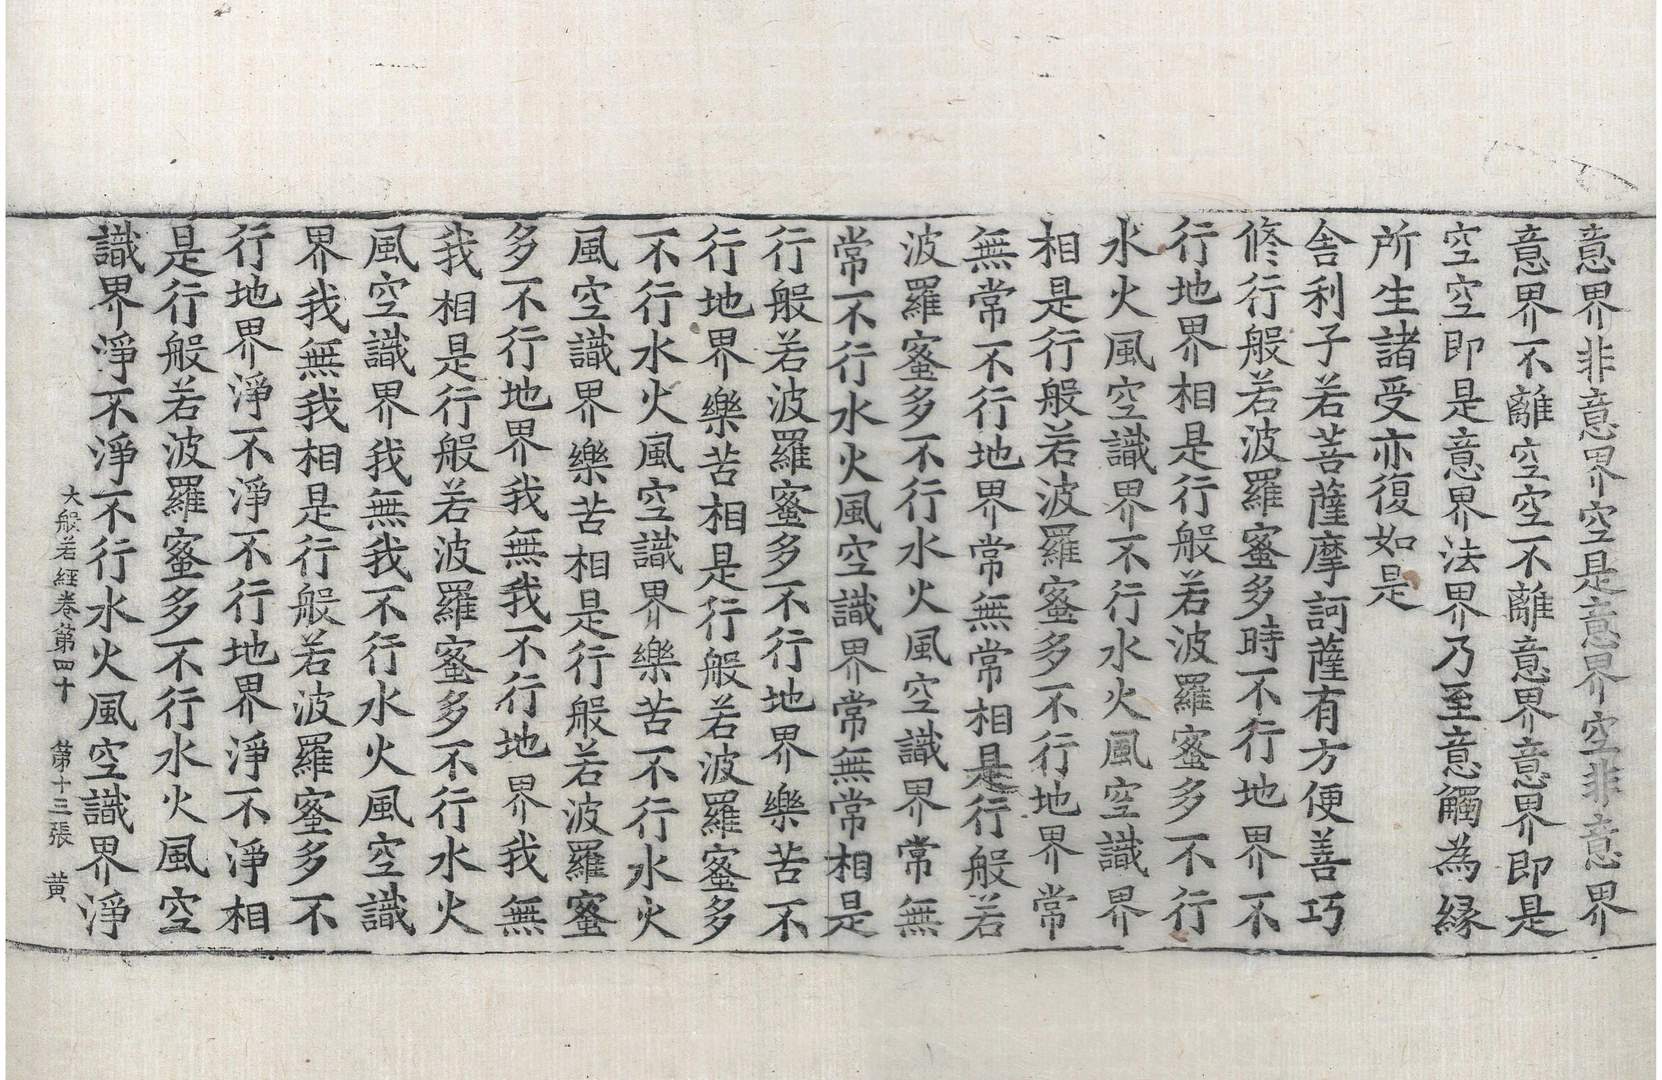 意界非意界空是意界空非意界
意界不離空空不離意界意界即是
空空即是意界法界乃至意觸為縁
所生諸受亦復如是
舍利子若菩薩摩訶薩有方便善巧
修行般若波羅蜜多時不行地界不
行地界相是行般若波羅蜜多不行
水火風空識界不行水火風空識界
相是行般若波羅蜜多不行地界常
無常不行地界常無常相是行般若
波羅蜜多不行水火風空識界常無
常不行水火風空識界常無常相是
行般若波羅蜜多不行地界樂苦不
行地界樂苦相是行般若波羅蜜多
不行水火風空識界樂苦不行水火
風空識界樂苦相是行般若波羅蜜
多不行地界我無我不行地界我無
我相是行般若波羅蜜多不行水火
風空識界我無我不行水火風空識
界我無我相是行般若波羅蜜多不
行地界淨不淨不行地界淨不淨相
是行般若波羅蜜多不行水火風空
識界淨不淨不行水火風空識界淨
大般若經卷第四十 第十三張 黃